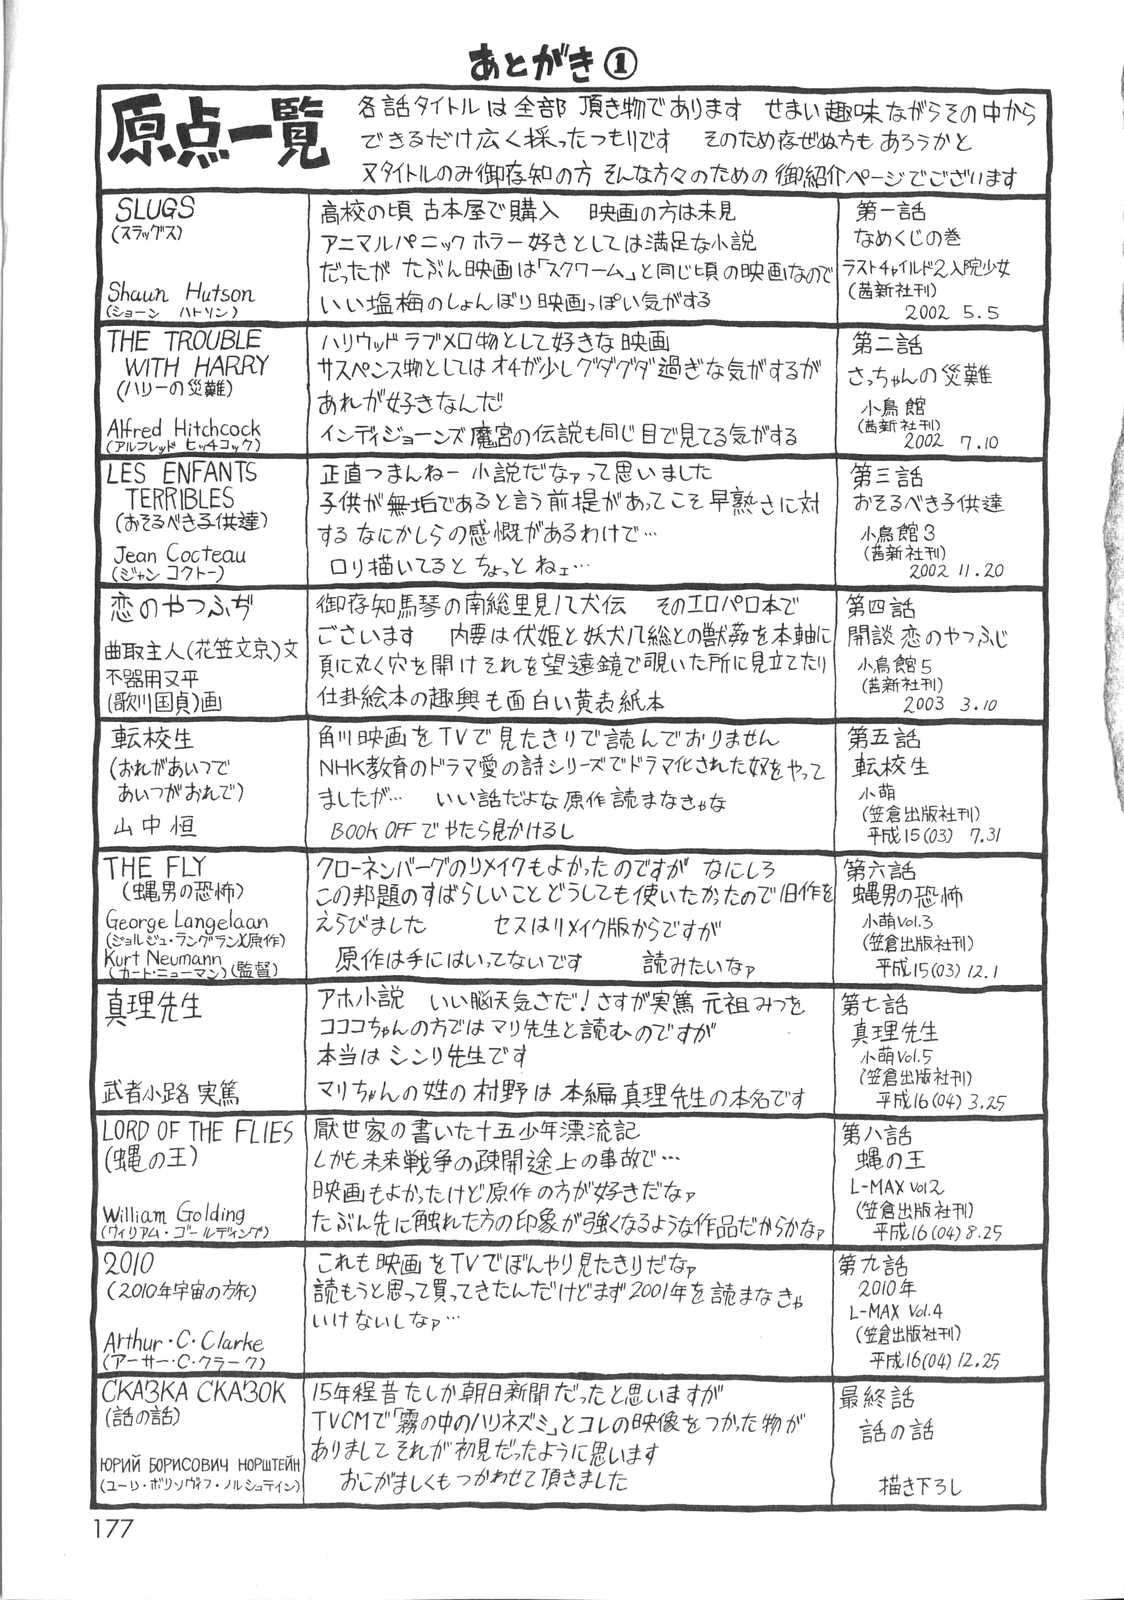 あとがき①
原点一覧
各話タイトルは全部 頂き物であります せまい趣味ながらその中から
できるだけ広く採ったつもりです そのため存ぜぬ方もあろうかと
又タイトルのみ御存知の方 そんな方々のための 御紹介ページでございます
SLUGS
(スラッグス)
Shaun Hutson
(ショーン ハトソン)
高校の頃 古本屋で購入 映画の方は未見
アニマルパニックホラー好きとしては満足な小説
だったが たぶん映画は「スクワーム」と同じ頃の映画なので
いい塩梅のしょんぼり映画っぽい気がする
第一話
なめくじの巻
ラストチャイルド2入院少女
(茜新社刊)
2002 5.5
THE TROUBLE
WITH HARRY
(ハリーの災難)
Alfred Hitchcock
(アルフレッド ヒッチコック)
ハリウッドラブメロ物として好きな映画
サスペンス物としてはオチが少しグダグダ過ぎな気がするが
あれが好きなんだ
インディジョーンズ魔宮の伝説も同じ目で見てる気がする
第二話
さっちゃんの災難
小鳥館
(茜新社刊)
2002 7.10
LES ENFANTS
TERRIBLES
(おそるべき子供達)
Jean Cocteau
(ジャン コクトー)
正直つまんねー小説だなァって思いました
子供が無垢であると言う前提があってこそ早熟さに対
するなにかしらの感慨があるわけで…
ロリ描いてるとちょっとねェ…
第三話
おそるべき子供達
小鳥館3
(茜新社刊)
2002 11.20
恋のやつふぢ
曲取主人(花笠文京)文
不器用又平
(歌川国貞)画
御存知馬琴の南総里見八犬伝 そのエロパロ本で
ございます 内要は伏姫と妖犬八総との獣姦を本軸に
頁に丸く穴を開けそれを望遠鏡で覗いた所に見立てたり
仕掛絵本の趣興も面白い黄表紙本
第四話
開談 恋のやつふじ
小鳥館5
(茜新社刊)
2003 3.10
転校生
(おれがあいつで
あいつがおれで)
山中恒
角川映画をTVで見たきりで読んでおりません
NHK教育のドラマ愛の詩シリーズでドラマ化された奴をやって
ましたが… いい話だよな原作読まなきゃな
BOOK OFFでやたら見かけるし
第五話
転校生
小萌
(笠倉出版社刊)
平成15(03) 7.31
THE FLY
(蝿男の恐怖)
George Langelaan
(ジョルジュ・ランジュラン)(原作)
Kurt Neumann
(カート・ニューマン)(監督)
クローネンバーグのリメイクもよかったのですが なにしろ
この邦題のすばらしいこと どうしても使いたかったので旧作を
えらびました セスはリメイク版からですが
原作は手にはいってないです 読みたいなァ
第六話
蝿男の恐怖
小萌Vol.3
(笠倉出版社刊)
平成15(03) 12.1
真理先生
武者小路 実篤
アホ小説 いい脳天気さだ!さすが実篤 元祖みつを
コココちゃんの方ではマリ先生と読むのですが
本当はシンリ先生です
マリちゃんの姓の村野は本編真理先生の本名です
第七話
真理先生
小萌Vol.5
(笠倉出版社刊)
平成16(04) 3.25
LORD OF THE FLIES
(蝿の王)
William Golding
(ウィリアム・ゴールディング)
厭世家の書いた十五少年漂流記
しかも未来戦争の疎開途上の事故で…
映画もよかったけど原作の方が好きだなァ
たぶん先に触れた方の印象が強くなるような作品だからかなァ
第八話
蝿の王
L-MAX Vol2
(笠倉出版社刊)
平成16(04) 8.25
2010
(2010年宇宙の旅)
Arthur・C・Clarke
(アーサー・C・クラーク)
これも映画をTVでぼんやり見たきりだなァ
読もうと思って買ってきたんだけどまず2001年を読まなきゃ
いけないしなァ…
第九話
2010年
L-MAX Vol.4
(笠倉出版社刊)
平成16(04) 12.25
СКА́ЗКА СКА́ЗОК
(話の話)
ЮРИЙ БОРИСОВИЧ НОРШТЕЙН
(ユーリ・ボリソヴィフ・ノルシュテイン)
15年程昔たしか朝日新聞だったと思いますが
TVCMで「霧の中のハリネズミ」とコレの映像をつかった物が
ありまして それが初見だったように思います
おこがましくもつかわせて頂きました
最終話
話の話
描き下ろし
177